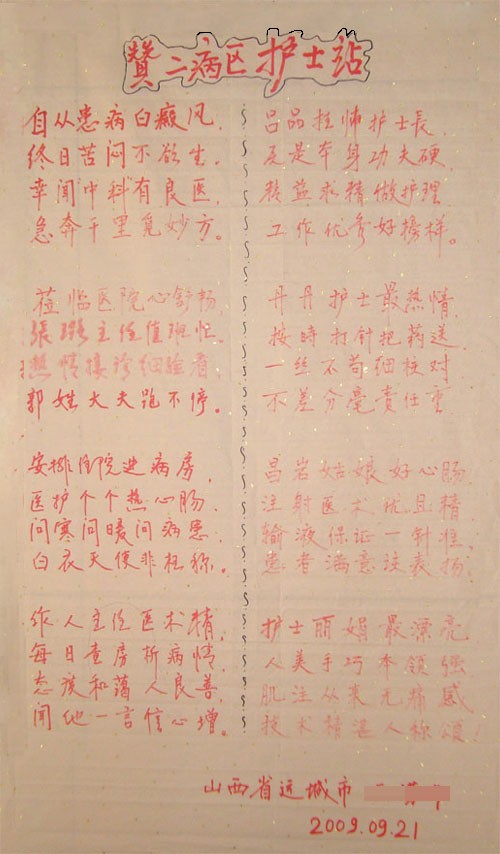 贊二病区护士站
自从患病白癜风,
终日苦闷不欲生。
幸闻中科有良医,
急奔千里觅妙方。
莅临医院心舒畅
张 主任值班忙
热情接诊细验看
郭姓大夫跑不停。
安排住院进病房,
医护个个热心肠
问寒问暖问病患,
白衣天使非枉称。
作人主任医术精,
每日查房析病情
态度和蔼人良善,
闻他一言信心增。
吕品 护士長,
及是本身功夫硬,
精益求精做护理
工作优秀好榜样。
丹丹护士最热情
按時打针把药送
一丝不苟细核对
不差分毫責任重
昌岩姑娘好心肠
注射医术优且精
输液保证一针准,
患者满意沒表扬
护士丽娟最漂亮
人美手巧本领强
肌注从来无痛感
技术精湛人称頌!
山西省运城市
2009.09.21